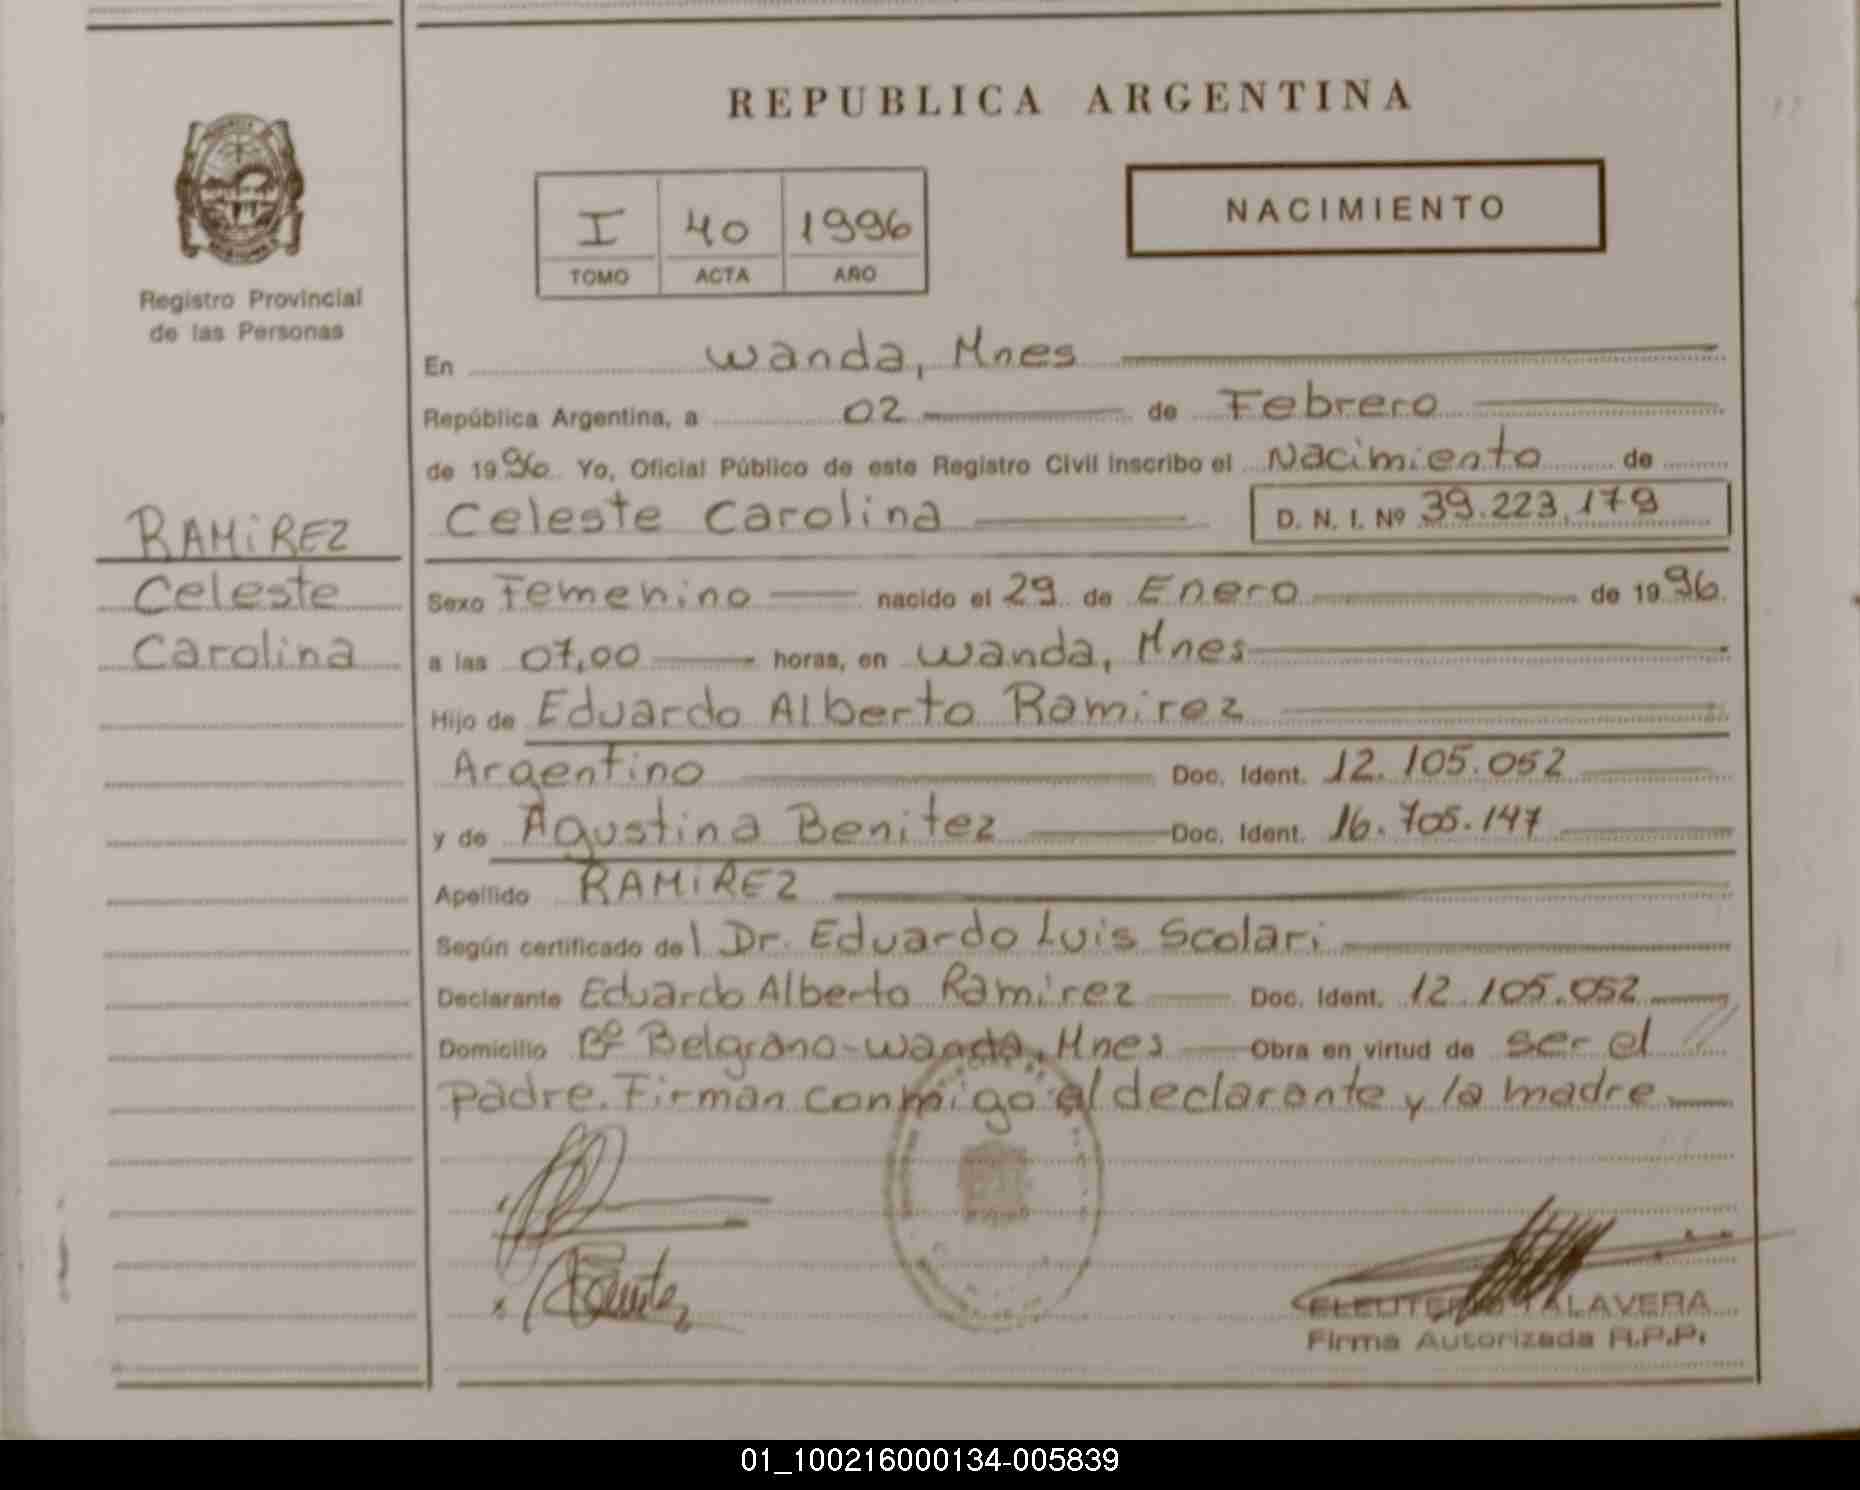 REPUBLICA ARGENTINA
NACIMIENTO
I 40 1996
TOMO ACTA AÑO
Registro Provincial
de las Personas
RAMIREZ
Celeste
Carolina
En Wanda, Mnes
República Argentina, a 02 de Febrero
de 1996 Yo, Oficial Público de este Registro Civil inscribo el Nacimiento de
Celeste Carolina D. N. I. Nº 39.223.179
Sexo Femenino nacido el 29 de Enero de 1996
a las 07,00 horas, en Wanda, Mnes
Hijo de Eduardo Alberto Ramirez
Argentino Doc. Ident. 12.105.052
y de Agustina Benitez Doc. Ident. 16.705.147
Apellido RAMIREZ
Según certificado del Dr. Eduardo Luis Scolari
Declarante Eduardo Alberto Ramirez Doc. Ident. 12.105.052
Domicilio Bº Belgrano-Wanda, Mnes Obra en virtud de ser el
padre. Firman conmigo el declarante y la madre
ELEUTERIO TALAVERA
Firma Autorizada R.P.P.
01_100216000134-005839